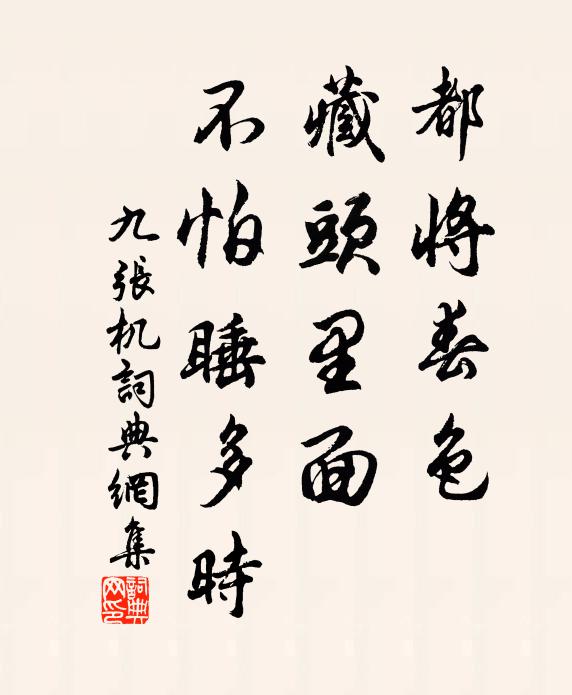 都將春色
藏頭里面
不怕睡多時
九張机詞典網集
詞典
网印